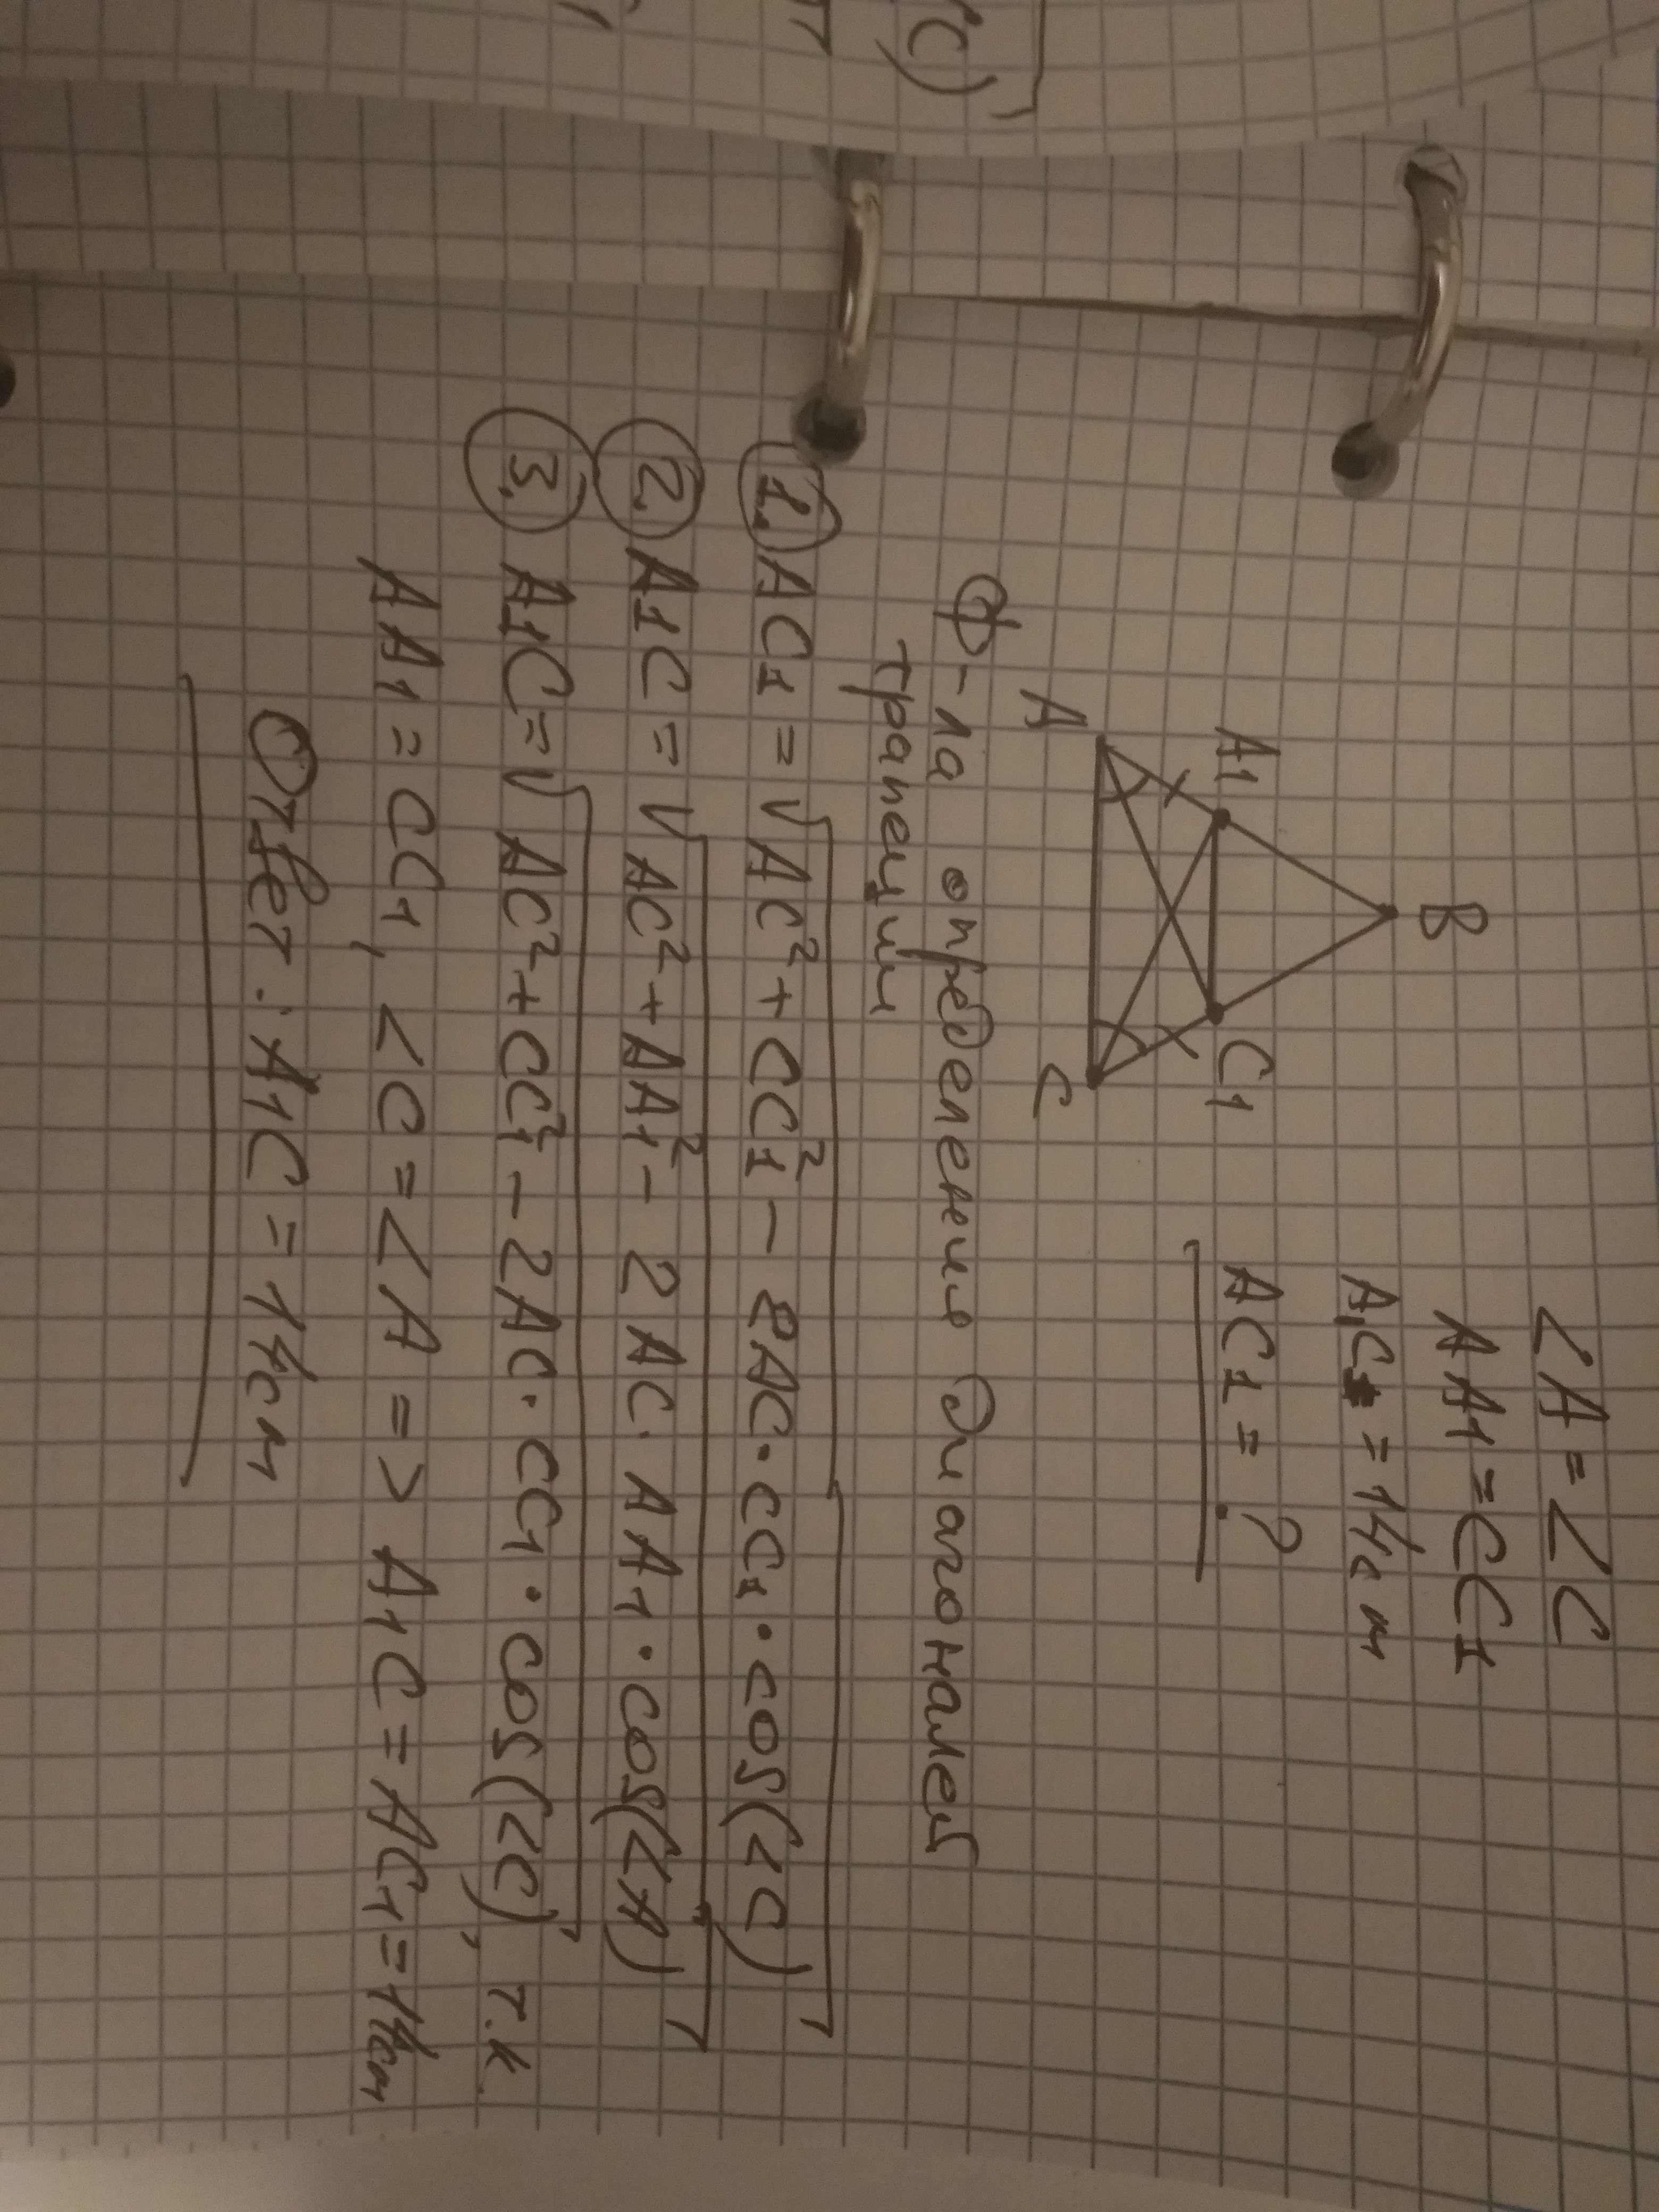 ∠A = ∠C
AA1 = CC1
A1C = 14см
AC1 = ?
B
A1
C1
A
C
Ф-ла определения диагоналей
трапеции
1. AC1 = √AC² + CC1² - 2AC · CC1 · cos(∠C)
2. A1C = √AC² + AA1² - 2AC · AA1 · cos(∠A)
3. A1C = √AC² + CC1² - 2AC · CC1 · cos(∠C), т.к.
AA1 = CC1, ∠C = ∠A => A1C = AC1 = 14см
Ответ: A1C = 14см